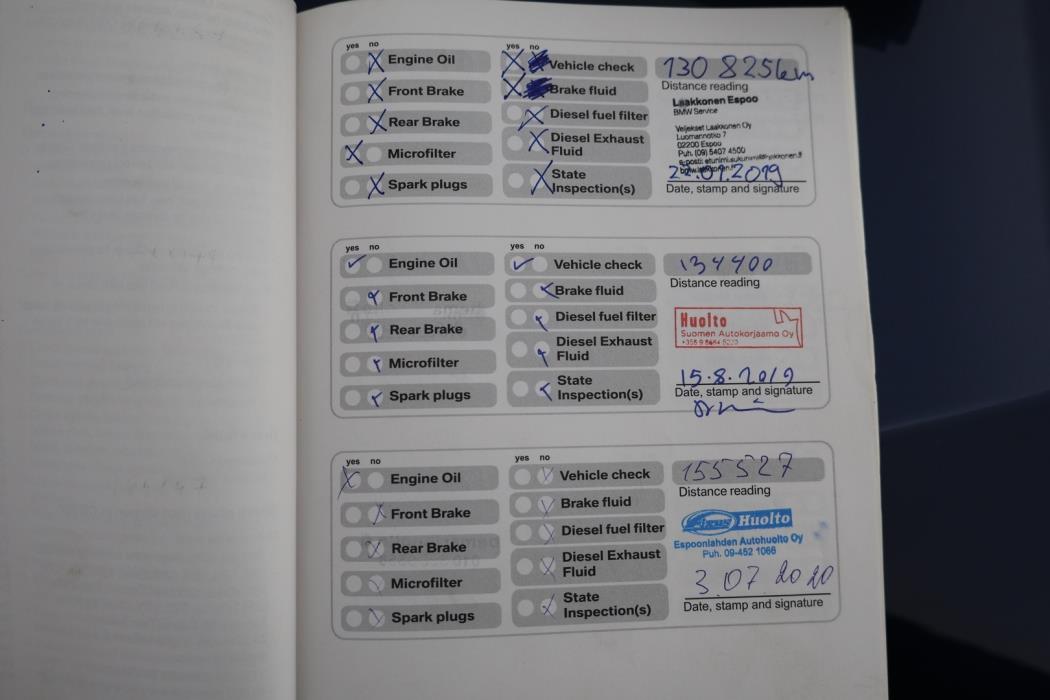 yes no
Engine Oil
Front Brake
Rear Brake
Microfilter
Spark plugs
yes no
Vehicle check
Brake fluid
Diesel fuel filter
Diesel Exhaust
Fluid
State
Inspection(s)
130 825km
Distance reading
Laakkonen Espoo
BMW Service
Veljekset Laakkonen Oy
Luomannotko 7
02200 Espoo
Puh. (09) 5407 4500
Date, stamp and signature
yes no
Engine Oil
Front Brake
Rear Brake
Microfilter
Spark plugs
yes no
Vehicle check
Brake fluid
Diesel fuel filter
Diesel Exhaust
Fluid
State
Inspection(s)
134400
Distance reading
Huolto
Suomen Autokorjaamo Oy
15.8.2019
Date, stamp and signature
yes no
Engine Oil
Front Brake
Rear Brake
Microfilter
Spark plugs
yes no
Vehicle check
Brake fluid
Diesel fuel filter
Diesel Exhaust
Fluid
State
Inspection(s)
155527
Distance reading
Fixus Huolto
Espoonlahden Autohuolto Oy
Puh. 09-452 1066
3.07.2020
Date, stamp and signature